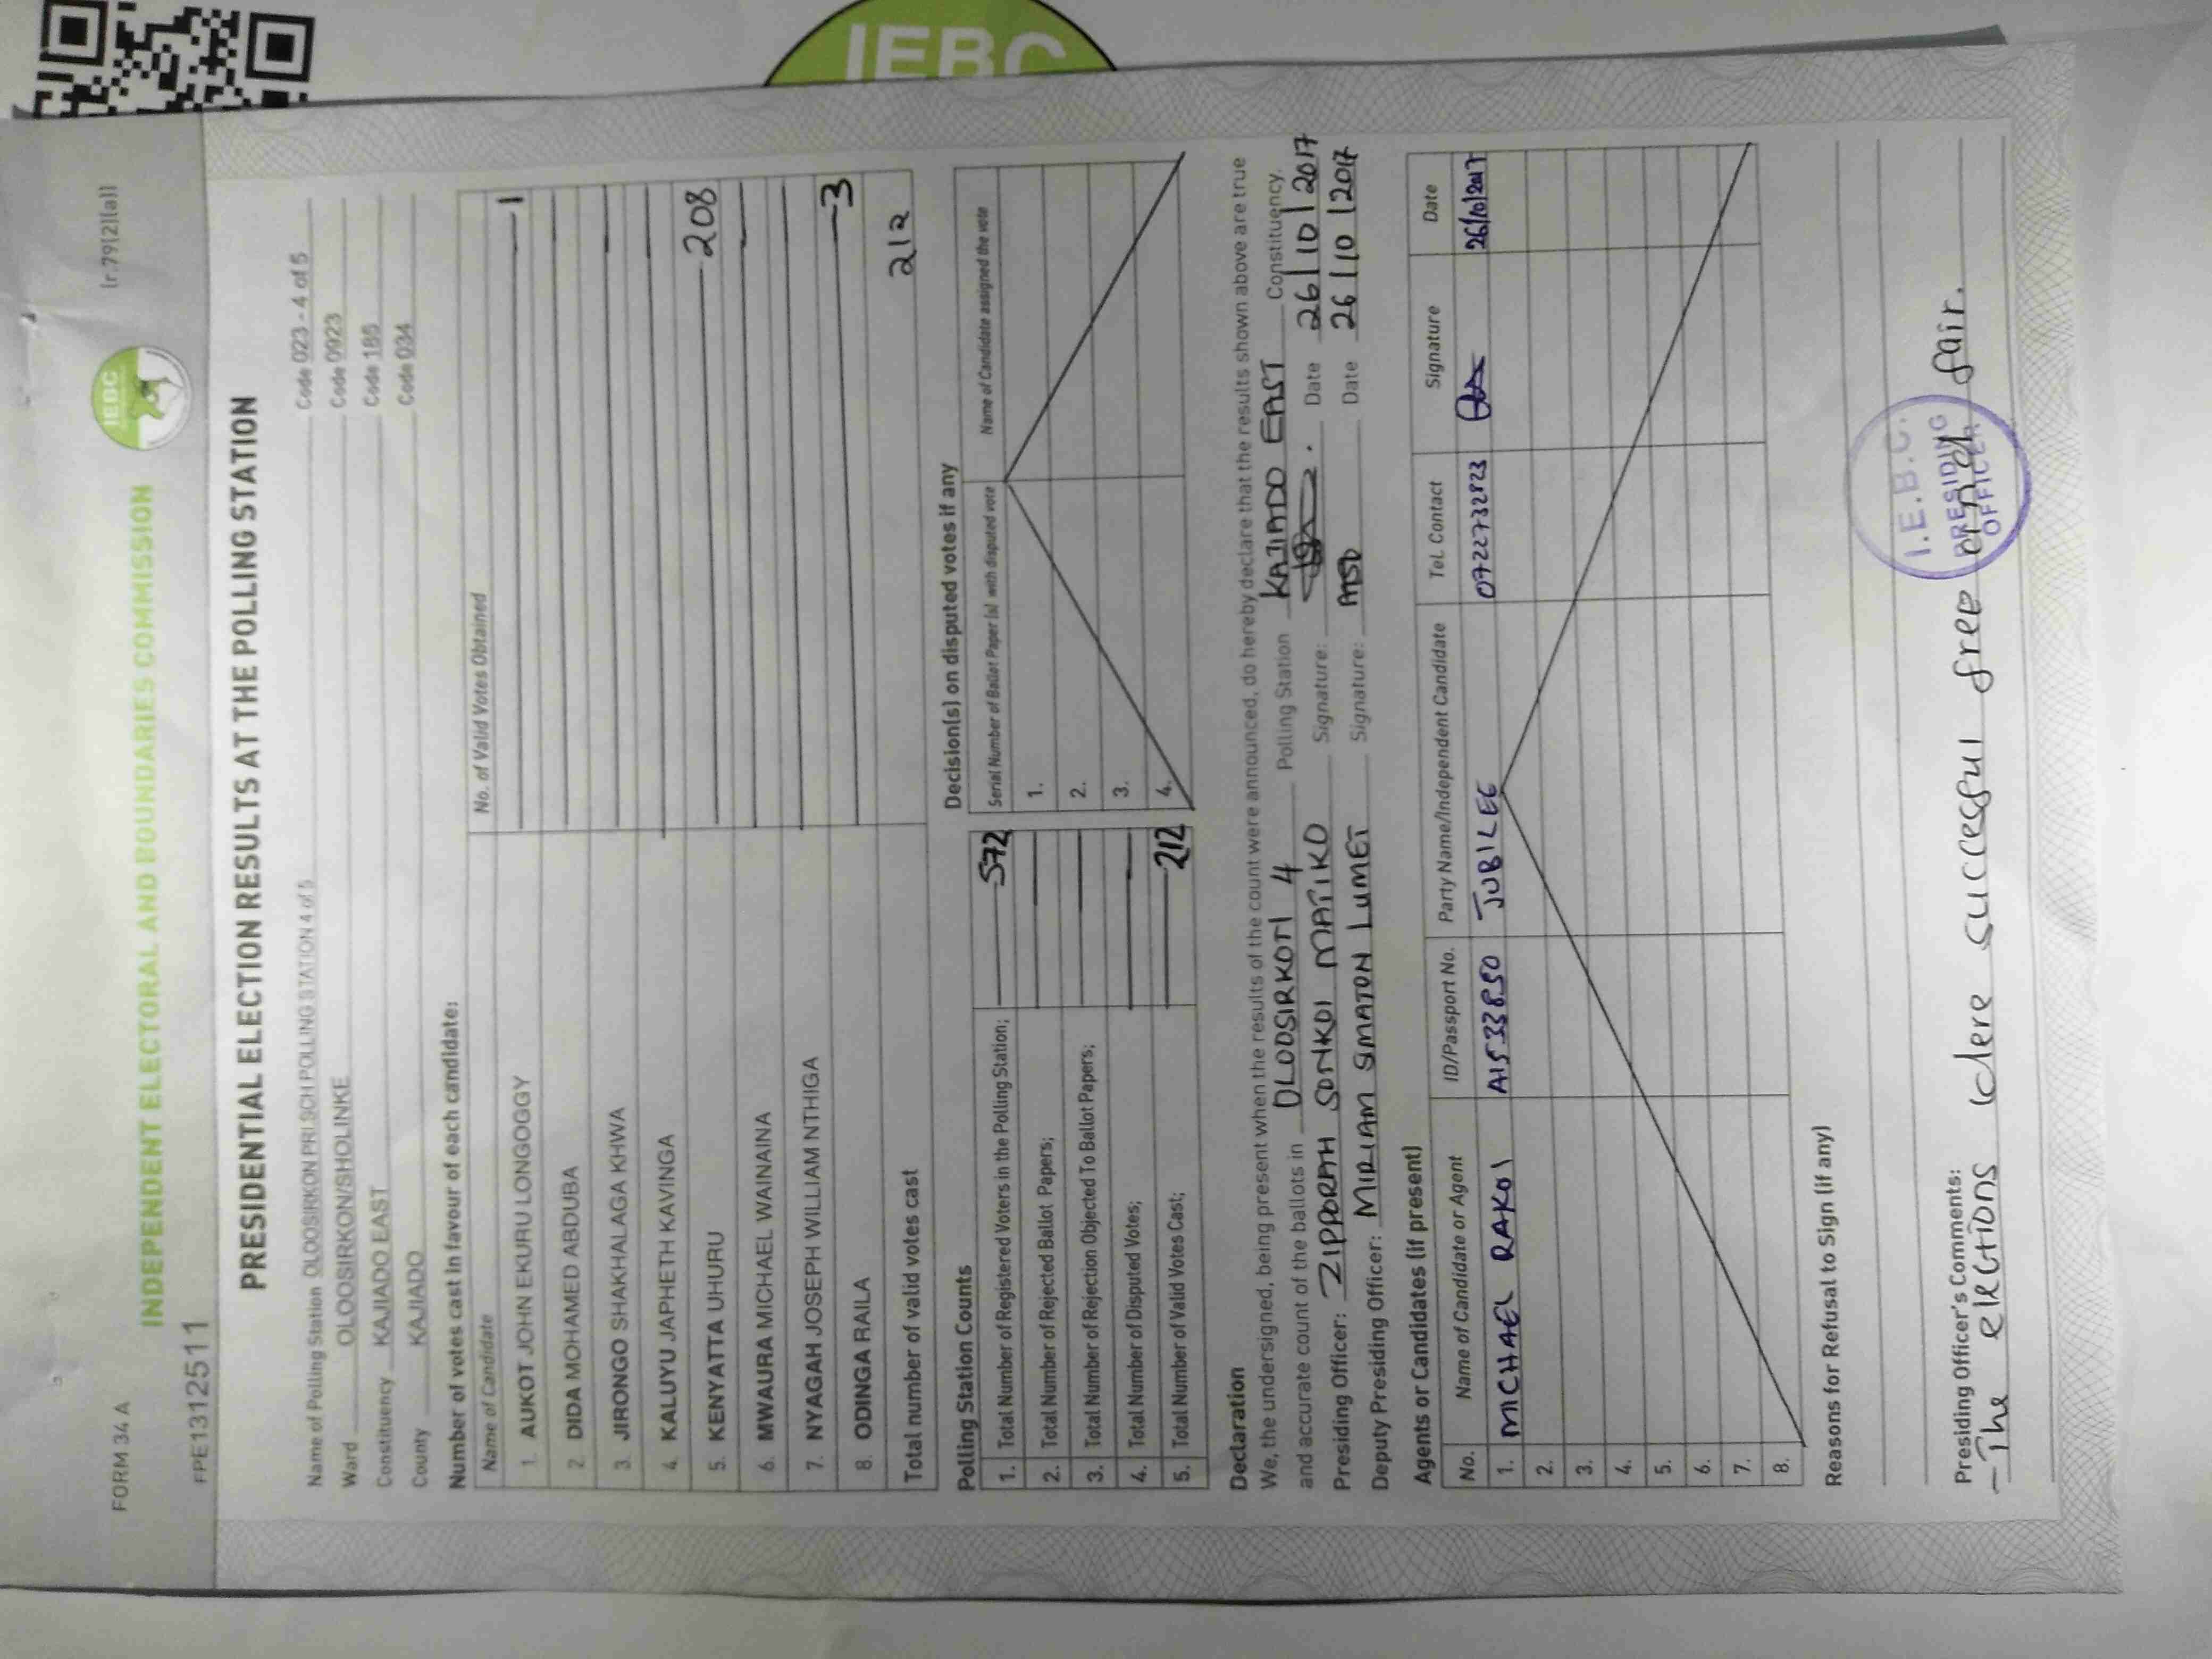 IEBC
FORM 34 A
(r.79(2)(a))
INDEPENDENT ELECTORAL AND BOUNDARIES COMMISSION
IEBC
FPE1312511
PRESIDENTIAL ELECTION RESULTS AT THE POLLING STATION
Name of Polling Station OLOOSIRKON PRI SCH POLLING STATION 4 of 5 Code 023 - 4 of 5
Ward OLOOSIRKON/SHOLINKE Code 0923
Constituency KAJIADO EAST Code 185
County KAJIADO Code 034
Number of votes cast in favour of each candidate:
Name of Candidate No. of Valid Votes Obtained
1. AUKOT JOHN EKURU LONGOGGY 1
2 DIDA MOHAMED ABDUBA
3. JIRONGO SHAKHALAGA KHWA
4. KALUYU JAPHETH KAVINGA
5. KENYATTA UHURU 208
6. MWAURA MICHAEL WAINAINA
7. NYAGAH JOSEPH WILLIAM NTHIGA
8. ODINGA RAILA 3
Total number of valid votes cast 212
Polling Station Counts
1. Total Number of Registered Voters in the Polling Station; 572
2. Total Number of Rejected Ballot Papers;
3. Total Number of Rejection Objected To Ballot Papers;
4. Total Number of Disputed Votes;
5. Total Number of Valid Votes Cast; 212
Decision(s) on disputed votes if any
Serial Number of Ballot Paper (s) with disputed vote Name of Candidate assigned the vote
1.
2.
3.
4.
Declaration
We, the undersigned, being present when the results of the count were announced, do hereby declare that the results shown above are true
and accurate count of the ballots in OLOOSIRKON 4 Polling Station KAJIADO EAST Constituency.
Presiding Officer: ZIPPORAH SONKOI MATIKO Signature: Date 26/10/2017
Deputy Presiding Officer: MIRIAM SMATON LUMET Signature: Date 26/10/2017
Agents or Candidates (if present)
No. Name of Candidate or Agent ID/Passport No. Party Name/Independent Candidate Tel. Contact Signature Date
1. MICHAEL RAKOI A1533850 JUBILEE 0722732823 26/10/2017
2.
3.
4.
5.
6.
7.
8.
Reasons for Refusal to Sign (if any)
Presiding Officer's Comments:
– The elections were successful free and fair.
I.E.B.C.
PRESIDING
OFFICER